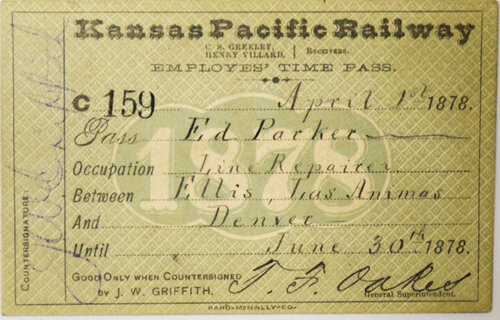 Kansas Pacific Railway
C. S. GREELEY,
HENRY VILLARD, } RECEIVERS.
EMPLOYES' TIME PASS.
C 159 April 1st 1878.
Pass Ed Parker
1878
Occupation Line Repairer
Between Ellis, Las Animas
And Denver
Until June 30th 1878.
GOOD ONLY WHEN COUNTERSIGNED
BY J. W. GRIFFITH.
T. F. Oakes
General Superintendent.
COUNTERSIGNATURE:
RAND-MCNALLY-CO.